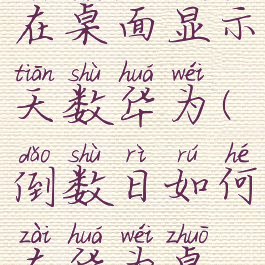 在桌面显示
tiān shù huá wéi
天数华为(
dǎo shù rì rú hé
倒数日如何
zài huá wéi zhuō
在华为桌